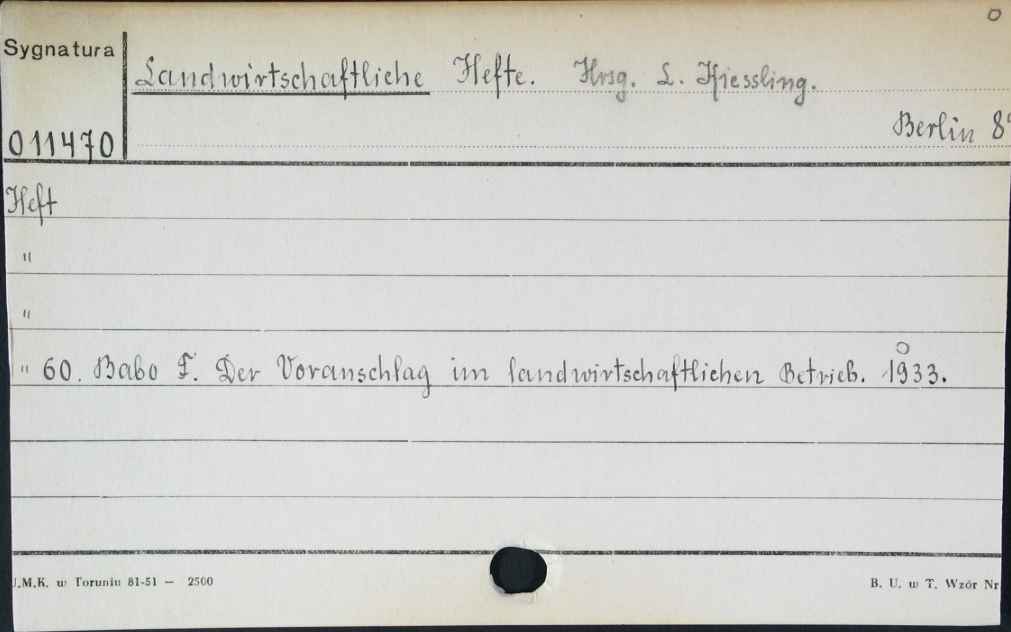 o
Sygnatura
Landwirtschaftliche Hefte. Hrsg. L. Kiessling.
Berlin 8°
011470
Heft
"
"
" 60. Babo F. Der Voranschlag im landwirtschaftlichen Betrieb. 1933.
U.M.K. w Toruniu 81-51 — 2500
B. U. w T. Wzór Nr